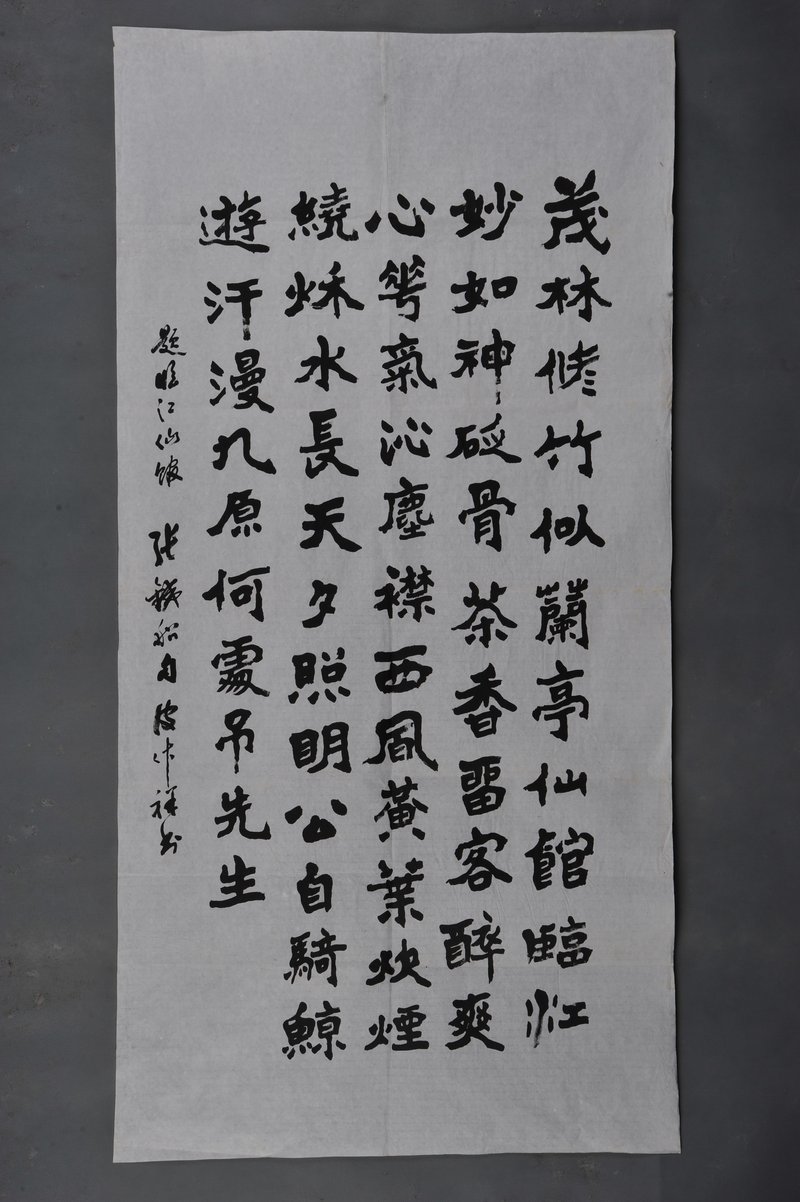 茂林修竹似蘭亭仙館臨江
妙如神砭骨茶香留客醉爽
心花氣沁塵襟西風黃葉炊煙
繞秋水長天夕照明公自騎鯨
遊汗漫九原何處吊先生
題臨江仙館 張鐵船句 祥書